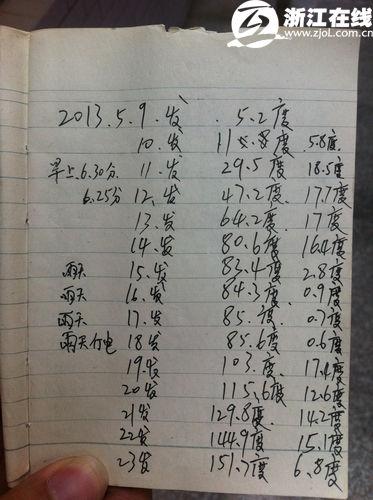 浙江在线
www.zjol.com.cn
2013.5.9.发 5.2度
10.发 11.8度 5.8度
早上6.30分 11.发 29.5度 18.5度
6.25分 12.发 47.2度 17.7度
13.发 64.2度 17度
14.发 80.6度 16.4度
雨天 15.发 83.4度 2.8度
雨天 16.发 84.3度 0.9度
雨天 17.发 85.度 0.7度
雨天 18发 85.6度 0.6度
19.发 103.度 17.4度
20发 115.6度 12.6度
21发 129.8度 14.2度
22发 144.9度 15.1度
23发 151.7度 6.8度